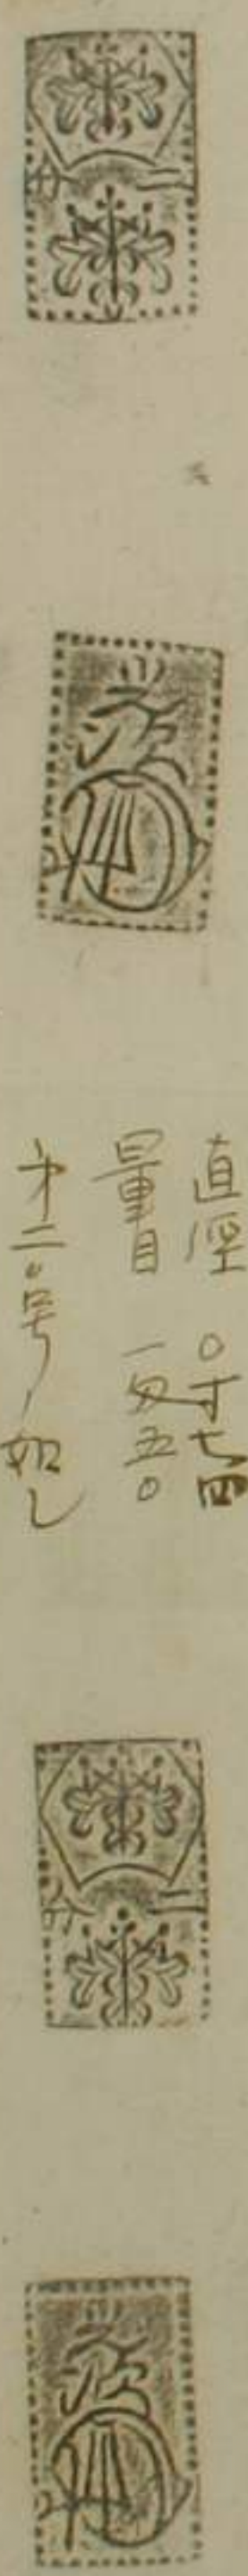 二分
光次
直径 〇寸七四
量目 一匁五〇
第二〇号ノ如シ
二分
光次